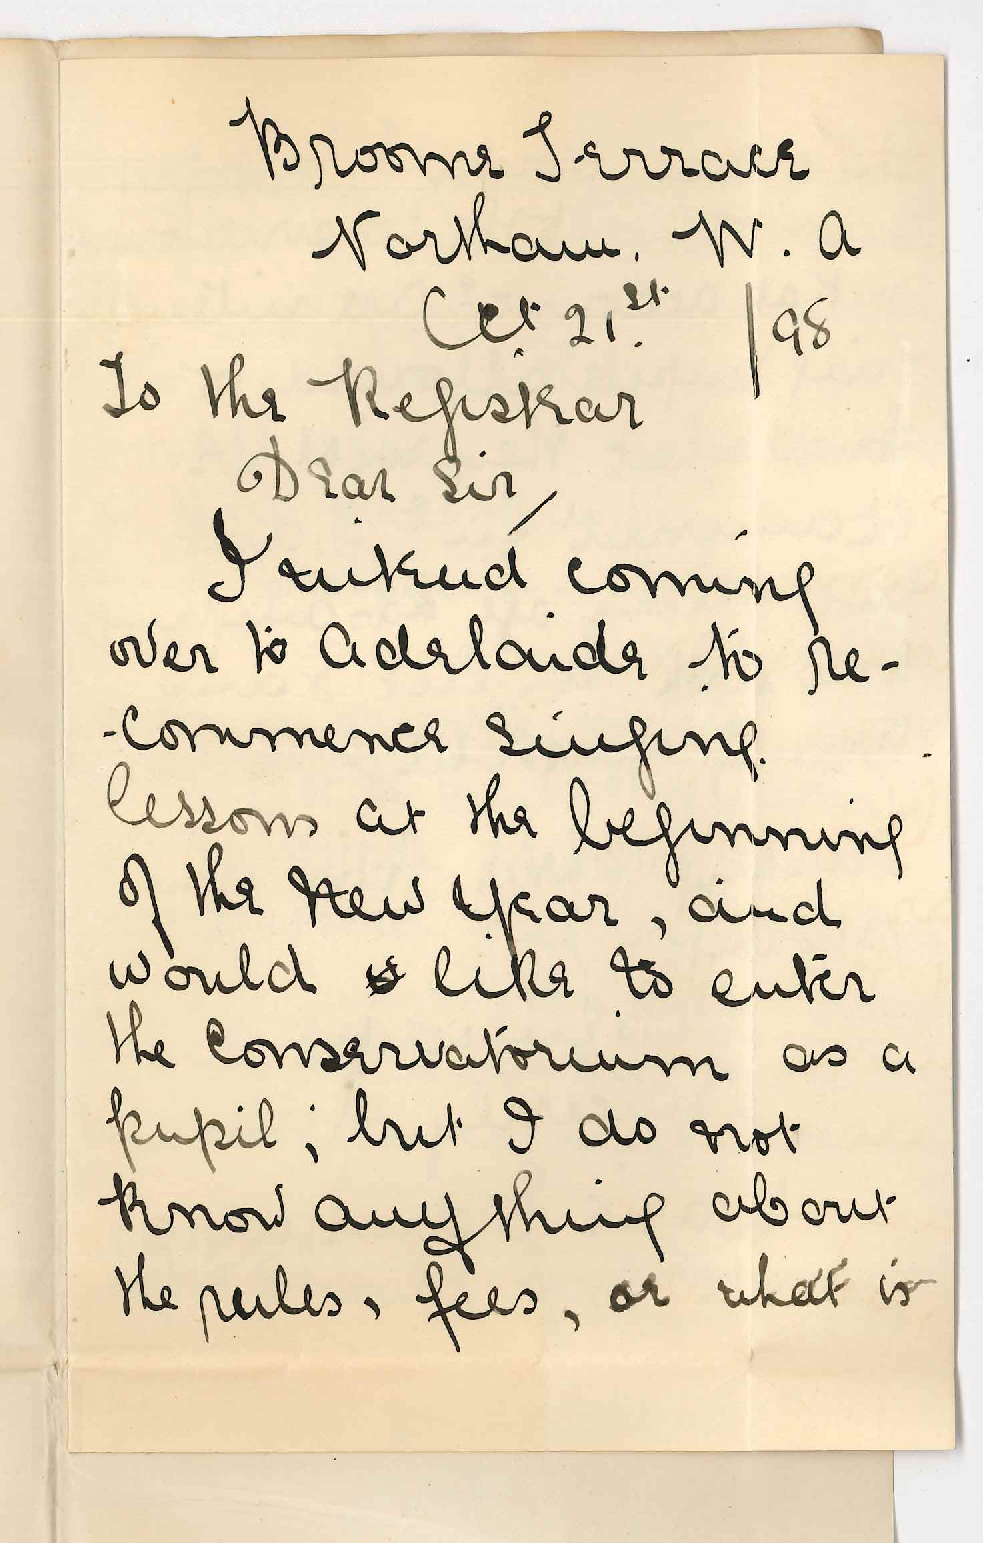 Broome Terrace
Northam. W. A
Oct 21st /98
To the Registrar
Dear Sir,
I intend coming
over to Adelaide to re-
-commence singing
lessons at the beginning
of the New Year, and
would like to enter
the Conservatorium as a
pupil; but I do not
know anything about
the rules, fees, or what is